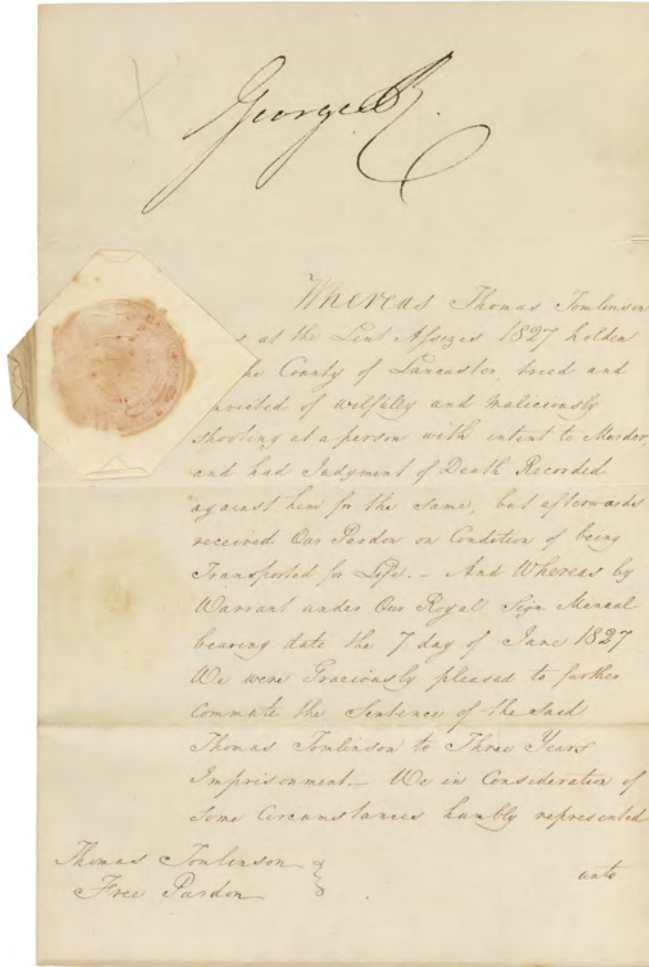 George R.
Whereas Thomas Tomlinson
at the Lent Assizes 1827 holden
he County of Lancaster, tried and
nvicted of wilfully and Maliciously
Shooting at a person with intent to Murder,
and had Judgment of Death Recorded
against him for the Same, but afterwards
received Our Pardon on Condition of being
Transported for Life. – And Whereas by
Warrant under Our Royal Sign Manual
bearing date the 7 day of June 1827
We were Graciously pleased to further
Commute the Sentence of the said
Thomas Tomlinson to Three Years
Imprisonment. – We in Consideration of
Some Circumstances humbly represented
unto
Thomas Tomlinson
Free Pardon